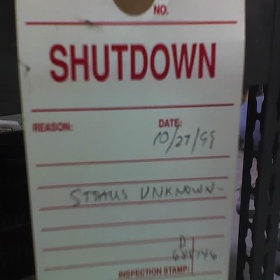 NO.
SHUTDOWN
REASON: DATE:
10/27/99
STATUS UNKNOWN-
INSPECTION STAMP: